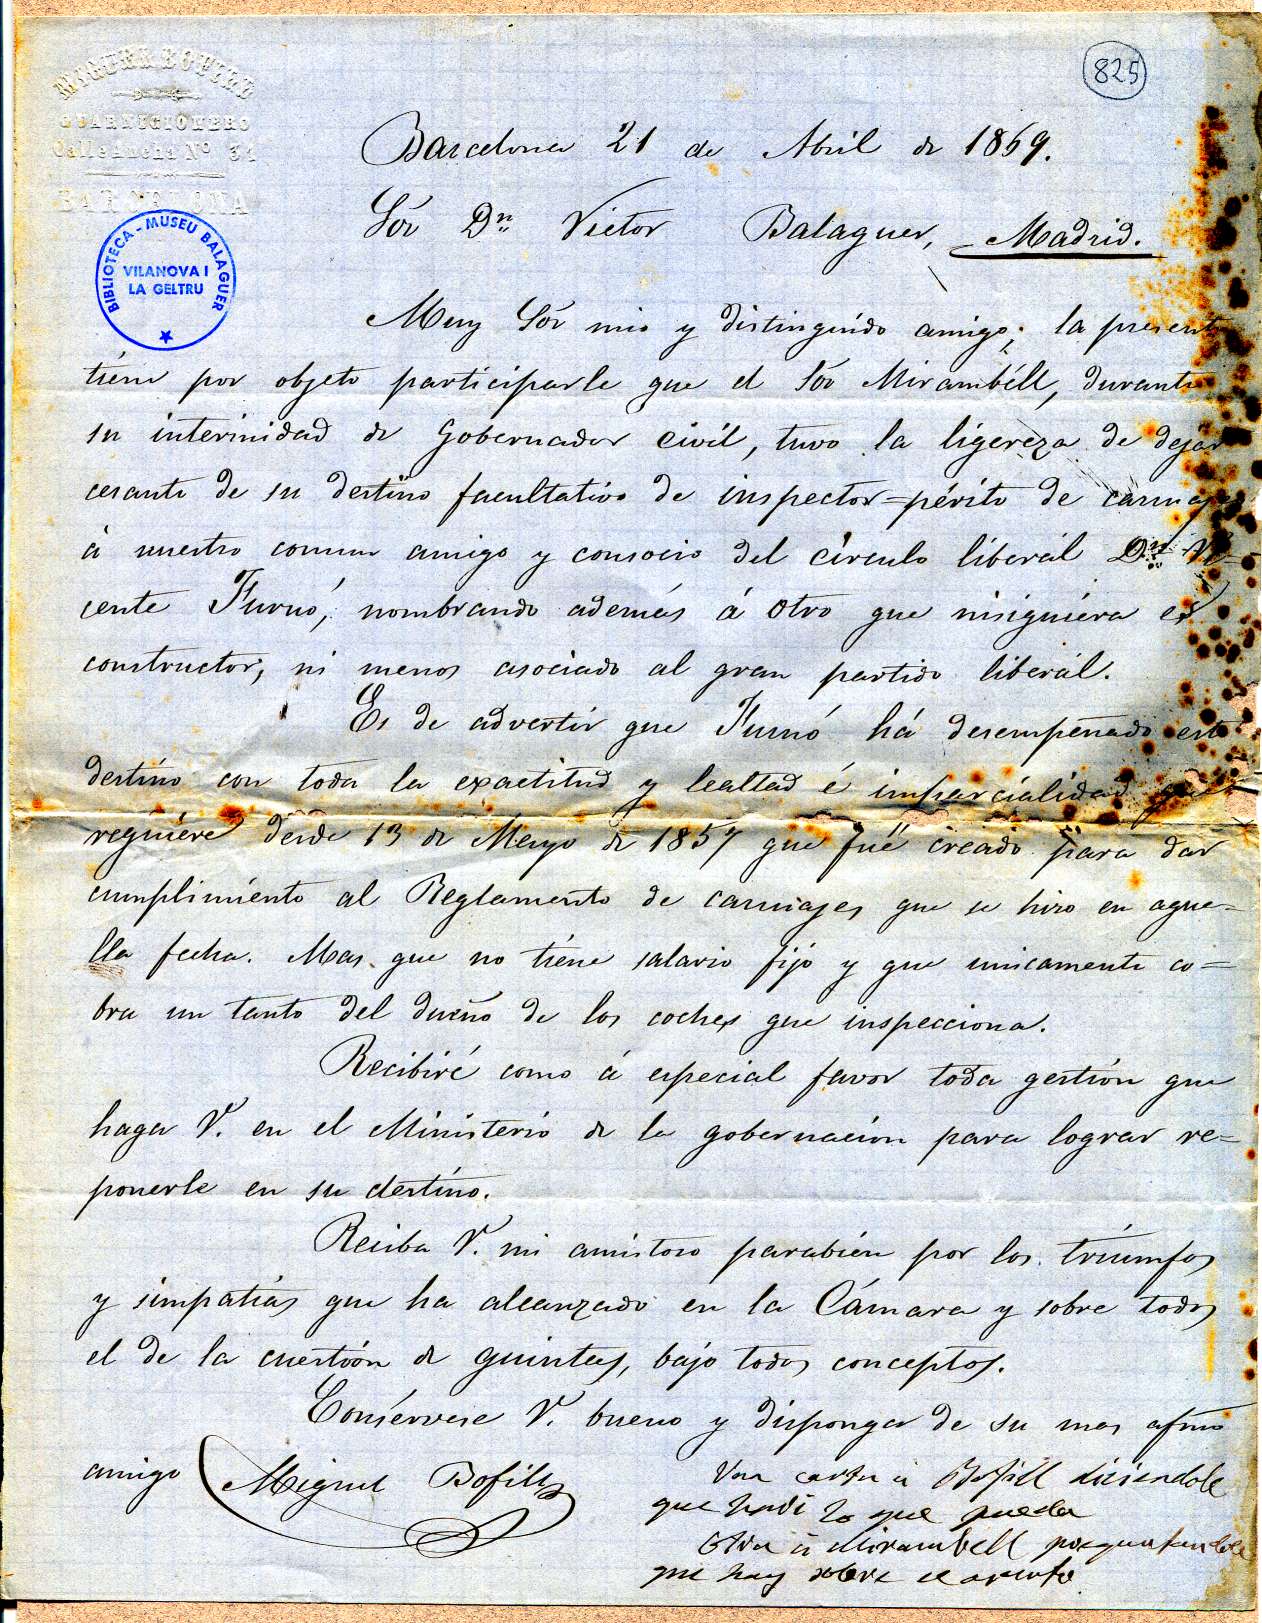 825
MIGUEL BOFILL
GUARNICIONERO
Calle Ancha Nº 31
BARCELONA
BIBLIOTECA - MUSEU BALAGUER
VILANOVA I
LA GELTRU
Barcelona 21 de Abril de 1869.
Sór Dn. Victor Balaguer, Madrid.
Muy Sór mio y distinguido amigo; la presente
tiene por objeto participarle que el Sór Mirambéll, durante
su interinidad de Gobernador civil, tuvo la ligereza de dejar
cesante de su destino facultativo de inspector=périto de carruajes
á nuestro comun amigo y consocio del círculo liberál Dn. Vi-
cente Furnó, nombrando además á otro que nisiquiera es
constructor, ni menos asociado al gran partido liberál.
Es de advertir que Furnó há desempeñado este
destino con toda la exactitud y lealtad é imparcialidad que
requiere desde 13 de Mayo de 1857 que fué creado para dar
cumplimiento al Reglamento de carruajes que se hizo en aque=
lla fecha. Mas que no tiene salario fijo y que unicamente co=
bra un tanto del dueño de los coches que inspecciona.
Recibiré como á especial favor toda gestión que
haga V. en el Ministerio de la gobernación para lograr re=
ponerle en su destino.
Reciba V. mi amistoso parabién por los triumfos
y simpatías que ha alcanzado en la Cámara y sobre todos
el de la cuestión de quintas, bajo todos conceptos.
Consérvese V. bueno y disponga de su mas afmo
amigo Miguel Bofill
Una carta á Bofill diciendole
que haré lo que pueda
Otra á Mirambell preguntandole
que hay sobre el asunto